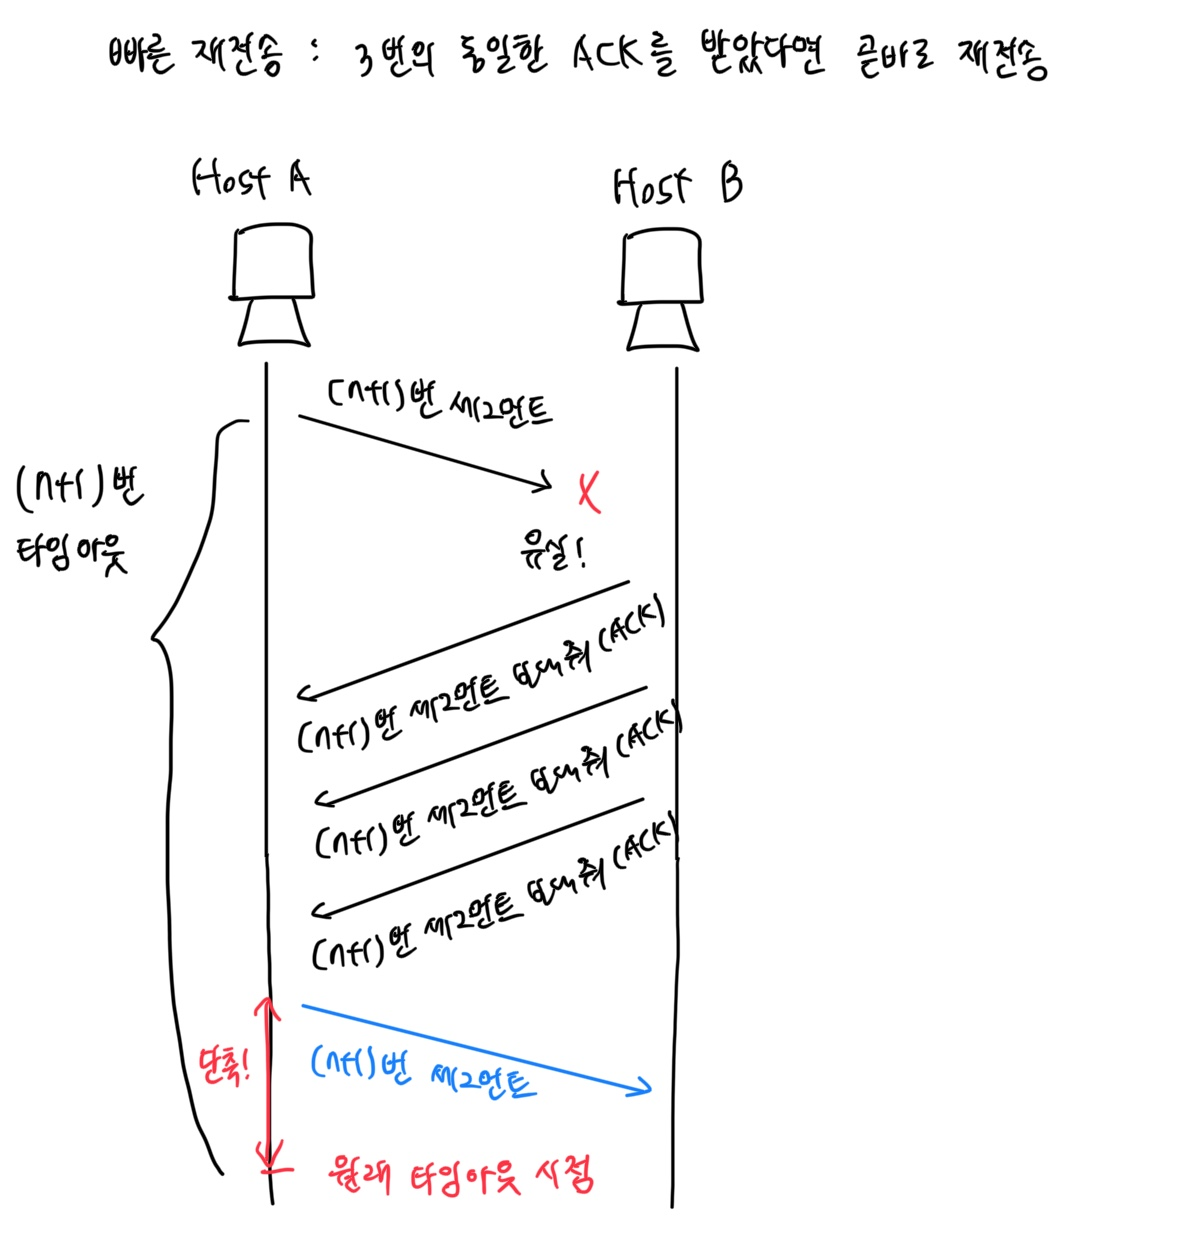 빠른 재전송 : 3번의 동일한 ACK를 받았다면 곧바로 재전송
Host A
Host B
(n+1)번 세그먼트
(n+1)번
타임아웃
X
유실!
(n+1)번 세그먼트 보내줘 (ACK)
(n+1)번 세그먼트 보내줘 (ACK)
(n+1)번 세그먼트 보내줘 (ACK)
단축!
(n+1)번 세그먼트
원래 타임아웃 시점